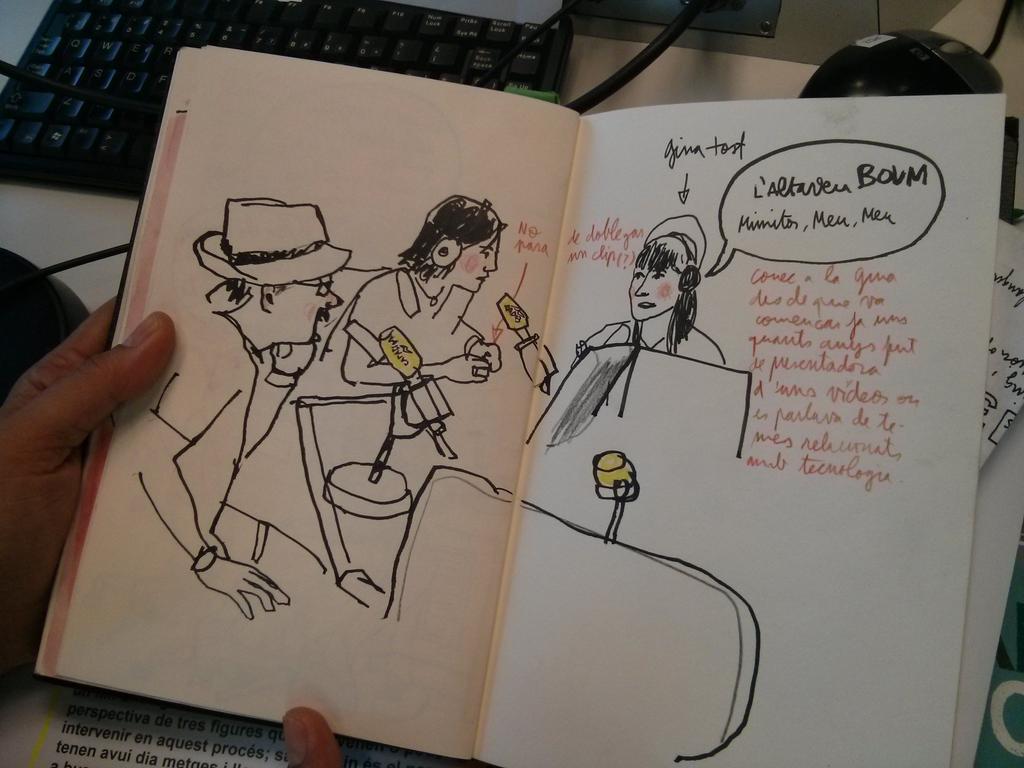 gina tost
L'Altaveu BOUM
Mimitos, Meu, Meu
No para
de doblegar
un clip(?)
conec a la Gina
des de que va
començar fa uns
quants anys fent
de presentadora
d'uns vídeos on
es parlava de te-
mes relacionats
amb tecnologia.
perspectiva de tres figures
intervenir en aquest procés;
tenen avui dia metges i